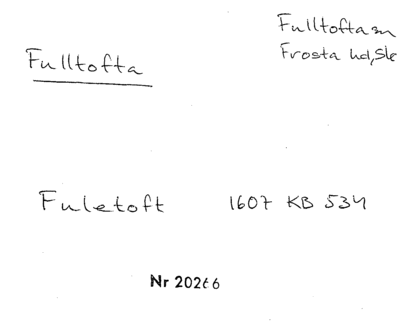 Fulltofta sn
Frosta hd, Sk
Fulltofta
Fuletoft 1607 KB 534
Nr 20266